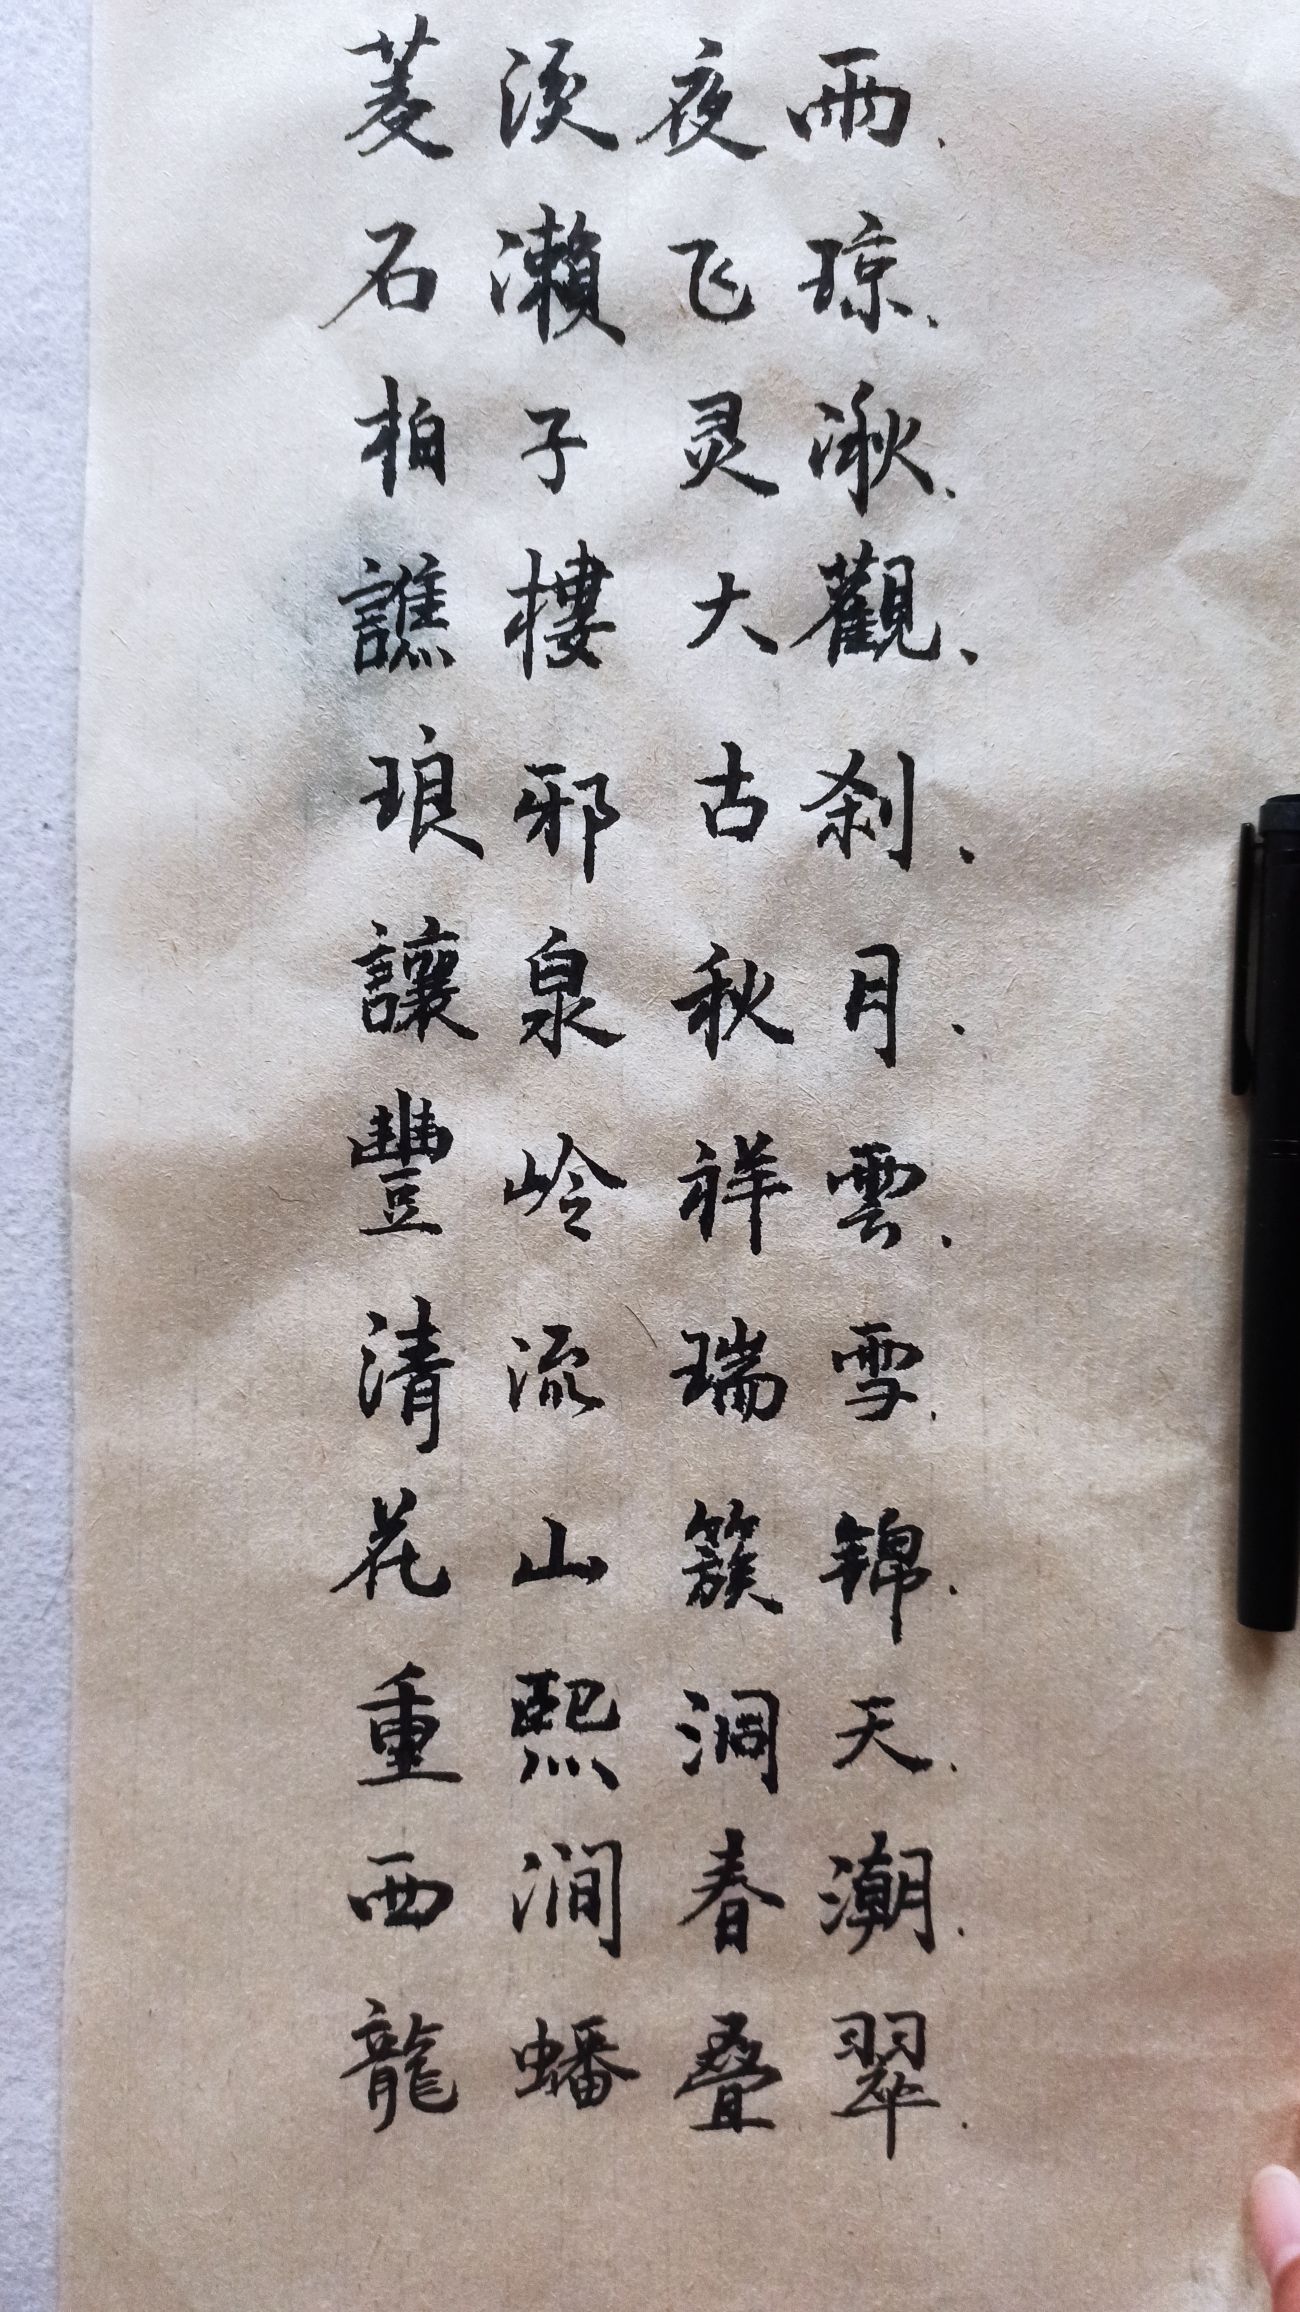 菱渓夜雨.
石瀨飞琼.
柏子灵湫.
譙樓大觀.
琅邪古刹.
讓泉秋月.
豐岭祥雲.
清流瑞雪.
花山簇锦.
重熙洞天.
西涧春潮.
龍蟠叠翠.